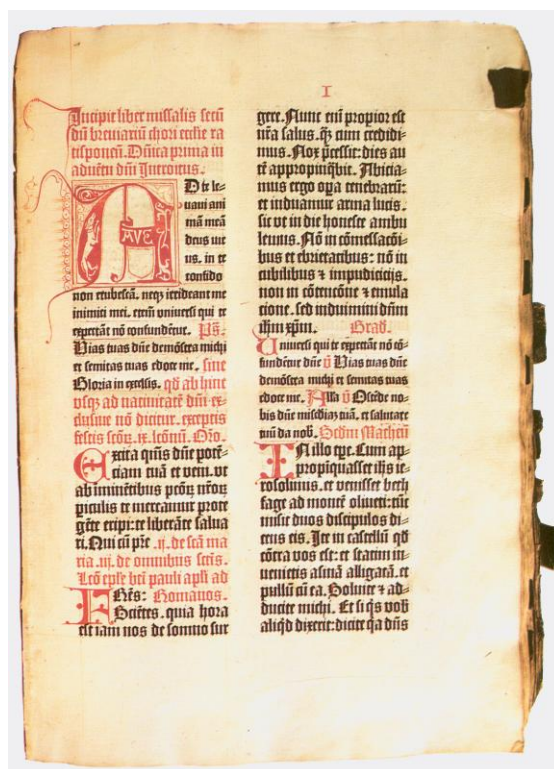 I
Incipit liber missalis secū
dū breviariū chori eccƚie ra
tisponeñ. Dñica prima in
adventu dñi Introitus.
AVE
D te le⸗
vavi ani
mā meā
deus me
us. in te
confido
non erubescā. neqʒ irrideant me
inimici mei. eteni universi qui te
expectāt nō confundētur. Ps̄.
Vias tuas dñe demōstra michi
et semitas tuas edoce me. sine
Gloria in excelsis. qd ab hinc
vsqʒ ad nativitatē dñi ex⸗
clusive nō dicitur. exceptis
festis scōꝝ. ix. lcōnū. Oro.
Excita qūs dñe potē⸗
ciam tuā et veni. vt
ab iminētibus pcōꝝ nr̄oꝝ
piculis te mereamur prote
gēte eripi: te liberāte salva
ri. Qui cū pr̄e .ij. de scā ma
ria .iij. de omnibus sctīs.
Lcō epƚe bti pauli apƚi ad
Frēs: Romanos.
Sciētes. quia hora
est iam nos de somno sur
gere. Nunc eni propior est
nr̄a salus. qʒ cum credidi⸗
mus. Nox p̄cessit: dies au
tē appropinq̄bit. Abicia⸗
mus ergo oꝑa tenebrarū:
et induamur arma lucis.
sic vt in die honeste ambu
lemus. Nō in cōmessacōi⸗
bus et ebrietatibus: nō in
cubilibus et impudicicijs.
non in cōtencōne et emula
cione. sed induimini dñm
ihm xp̄m. Grad.
Universi qui te expectāt nō cō⸗
fundētur dñe v̄ Vias tuas dñe
demōstra michi et semitas tuas
edoce me. Alla v̄ Ostēde no⸗
bis dñe misēdiaʒ tuā. et salutare
tuū da nob̄. Scdm Matheū
IN illo tp̄e. Cum ap⸗
propīquasset ihs ie⸗
rosolimis. et venisset beth
fage ad montē oliveti: tūc
misit duos discipulos di⸗
cens eis. Ite in castellū qd
cōtra vos est: et statim in⸗
venietis asinā alligatā. et
pullū cū ea. Solvite ⁊ ad⸗
ducite michi. Et si q̄s vob̄
aliq̄d dixerit: dicite q̄a dñs